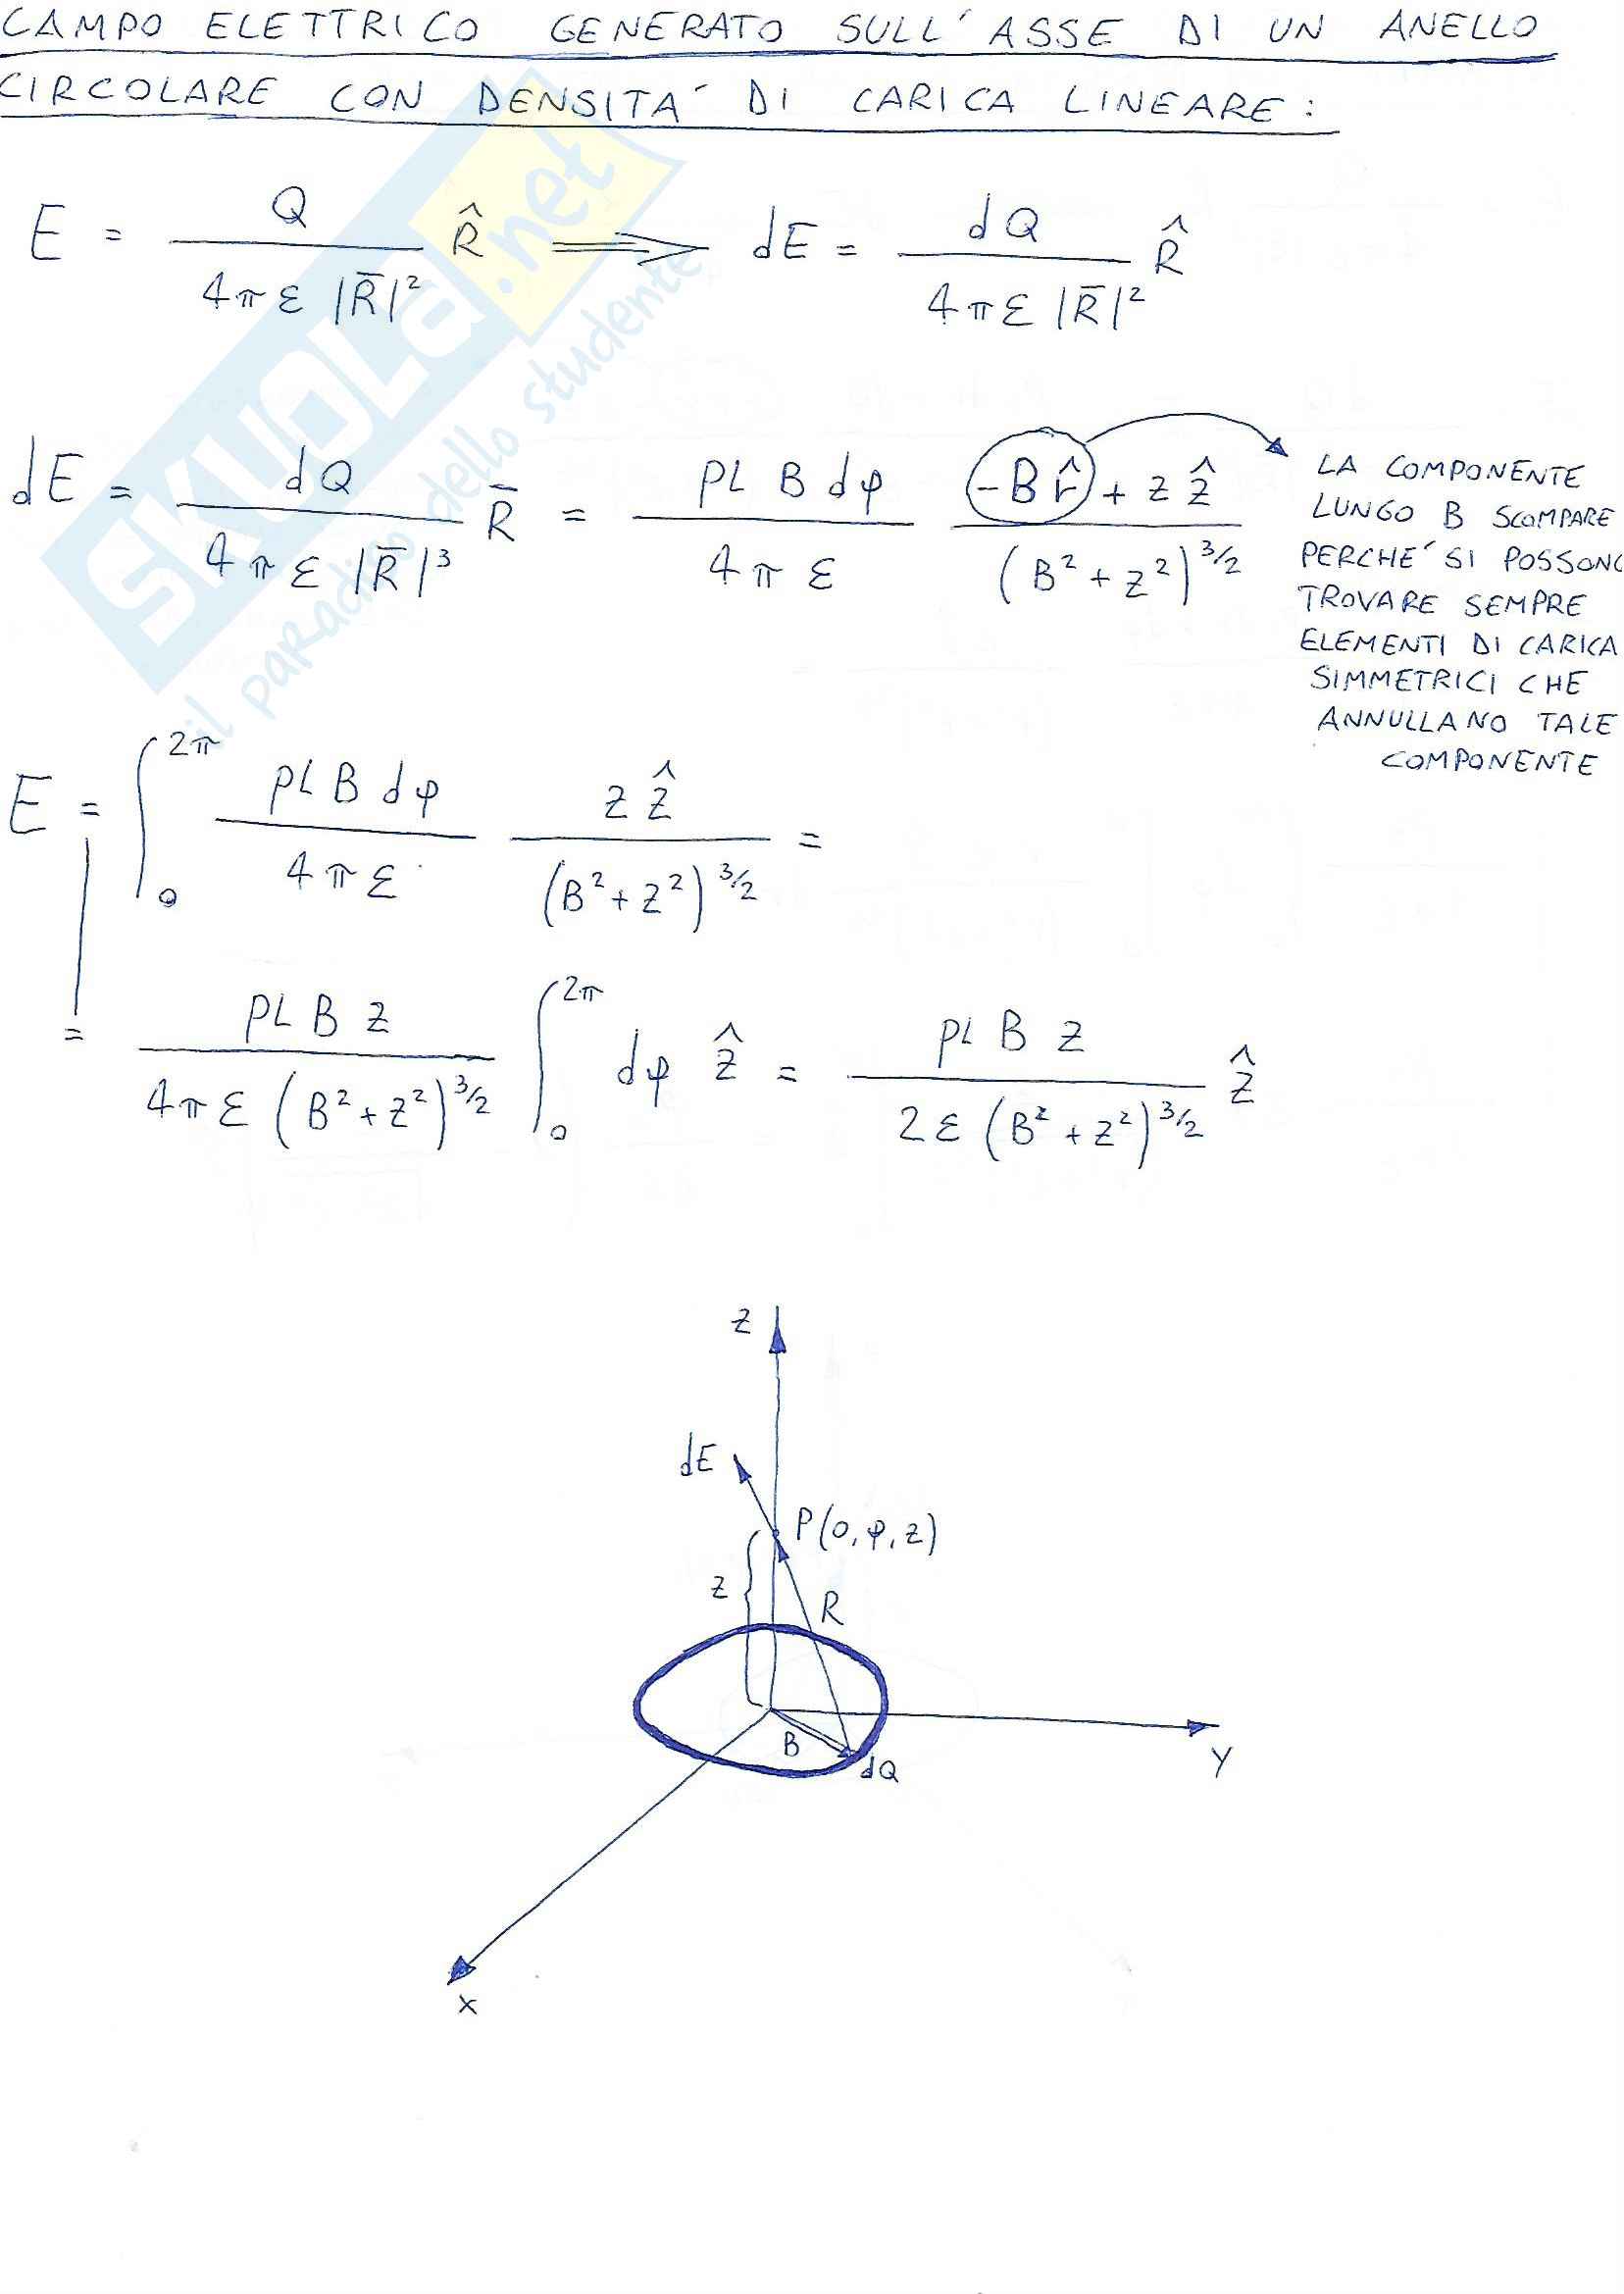 CAMPO ELETTRICO GENERATO SULL'ASSE DI UN ANELLO
CIRCOLARE CON DENSITA' DI CARICA LINEARE:
E = Q / (4π ε |R̄|²) R̂ ⟹ dE = dQ / (4π ε |R̄|²) R̂
dE = dQ / (4π ε |R̄|³) R̄ = ρL B dφ / (4π ε) (-B r̂ + z ẑ) / (B² + z²)^3/2
LA COMPONENTE
LUNGO B SCOMPARE
PERCHE' SI POSSONO
TROVARE SEMPRE
ELEMENTI DI CARICA
SIMMETRICI CHE
ANNULLANO TALE
COMPONENTE
E = ∫₀^2π ρL B dφ / (4π ε) z ẑ / (B² + z²)^3/2 =
= ρL B z / (4π ε (B² + z²)^3/2) ∫₀^2π dφ ẑ = ρL B z / (2 ε (B² + z²)^3/2) ẑ
z
dE
P(0, φ, z)
z
R
B
dQ
y
x
SKUOLA.net
il paradiso dello studente